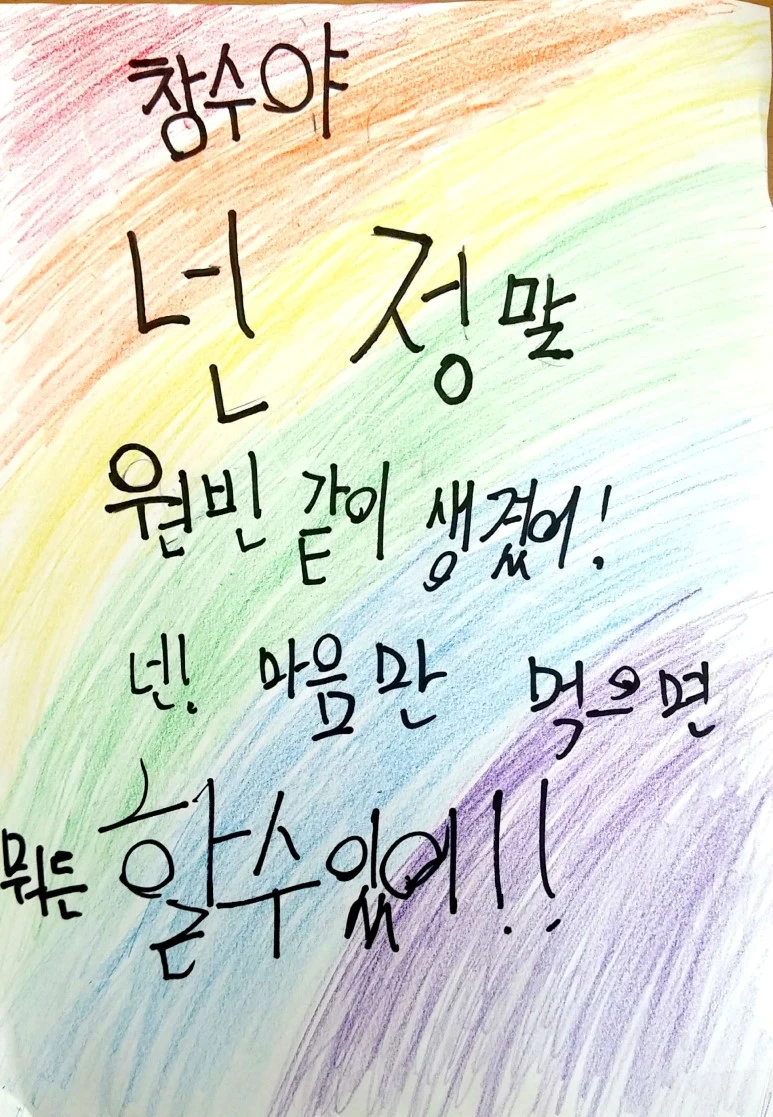 창수야
넌 정말
원빈 같이 생겼어!
넌! 마음만 먹으면
뭐든 할수있어!!